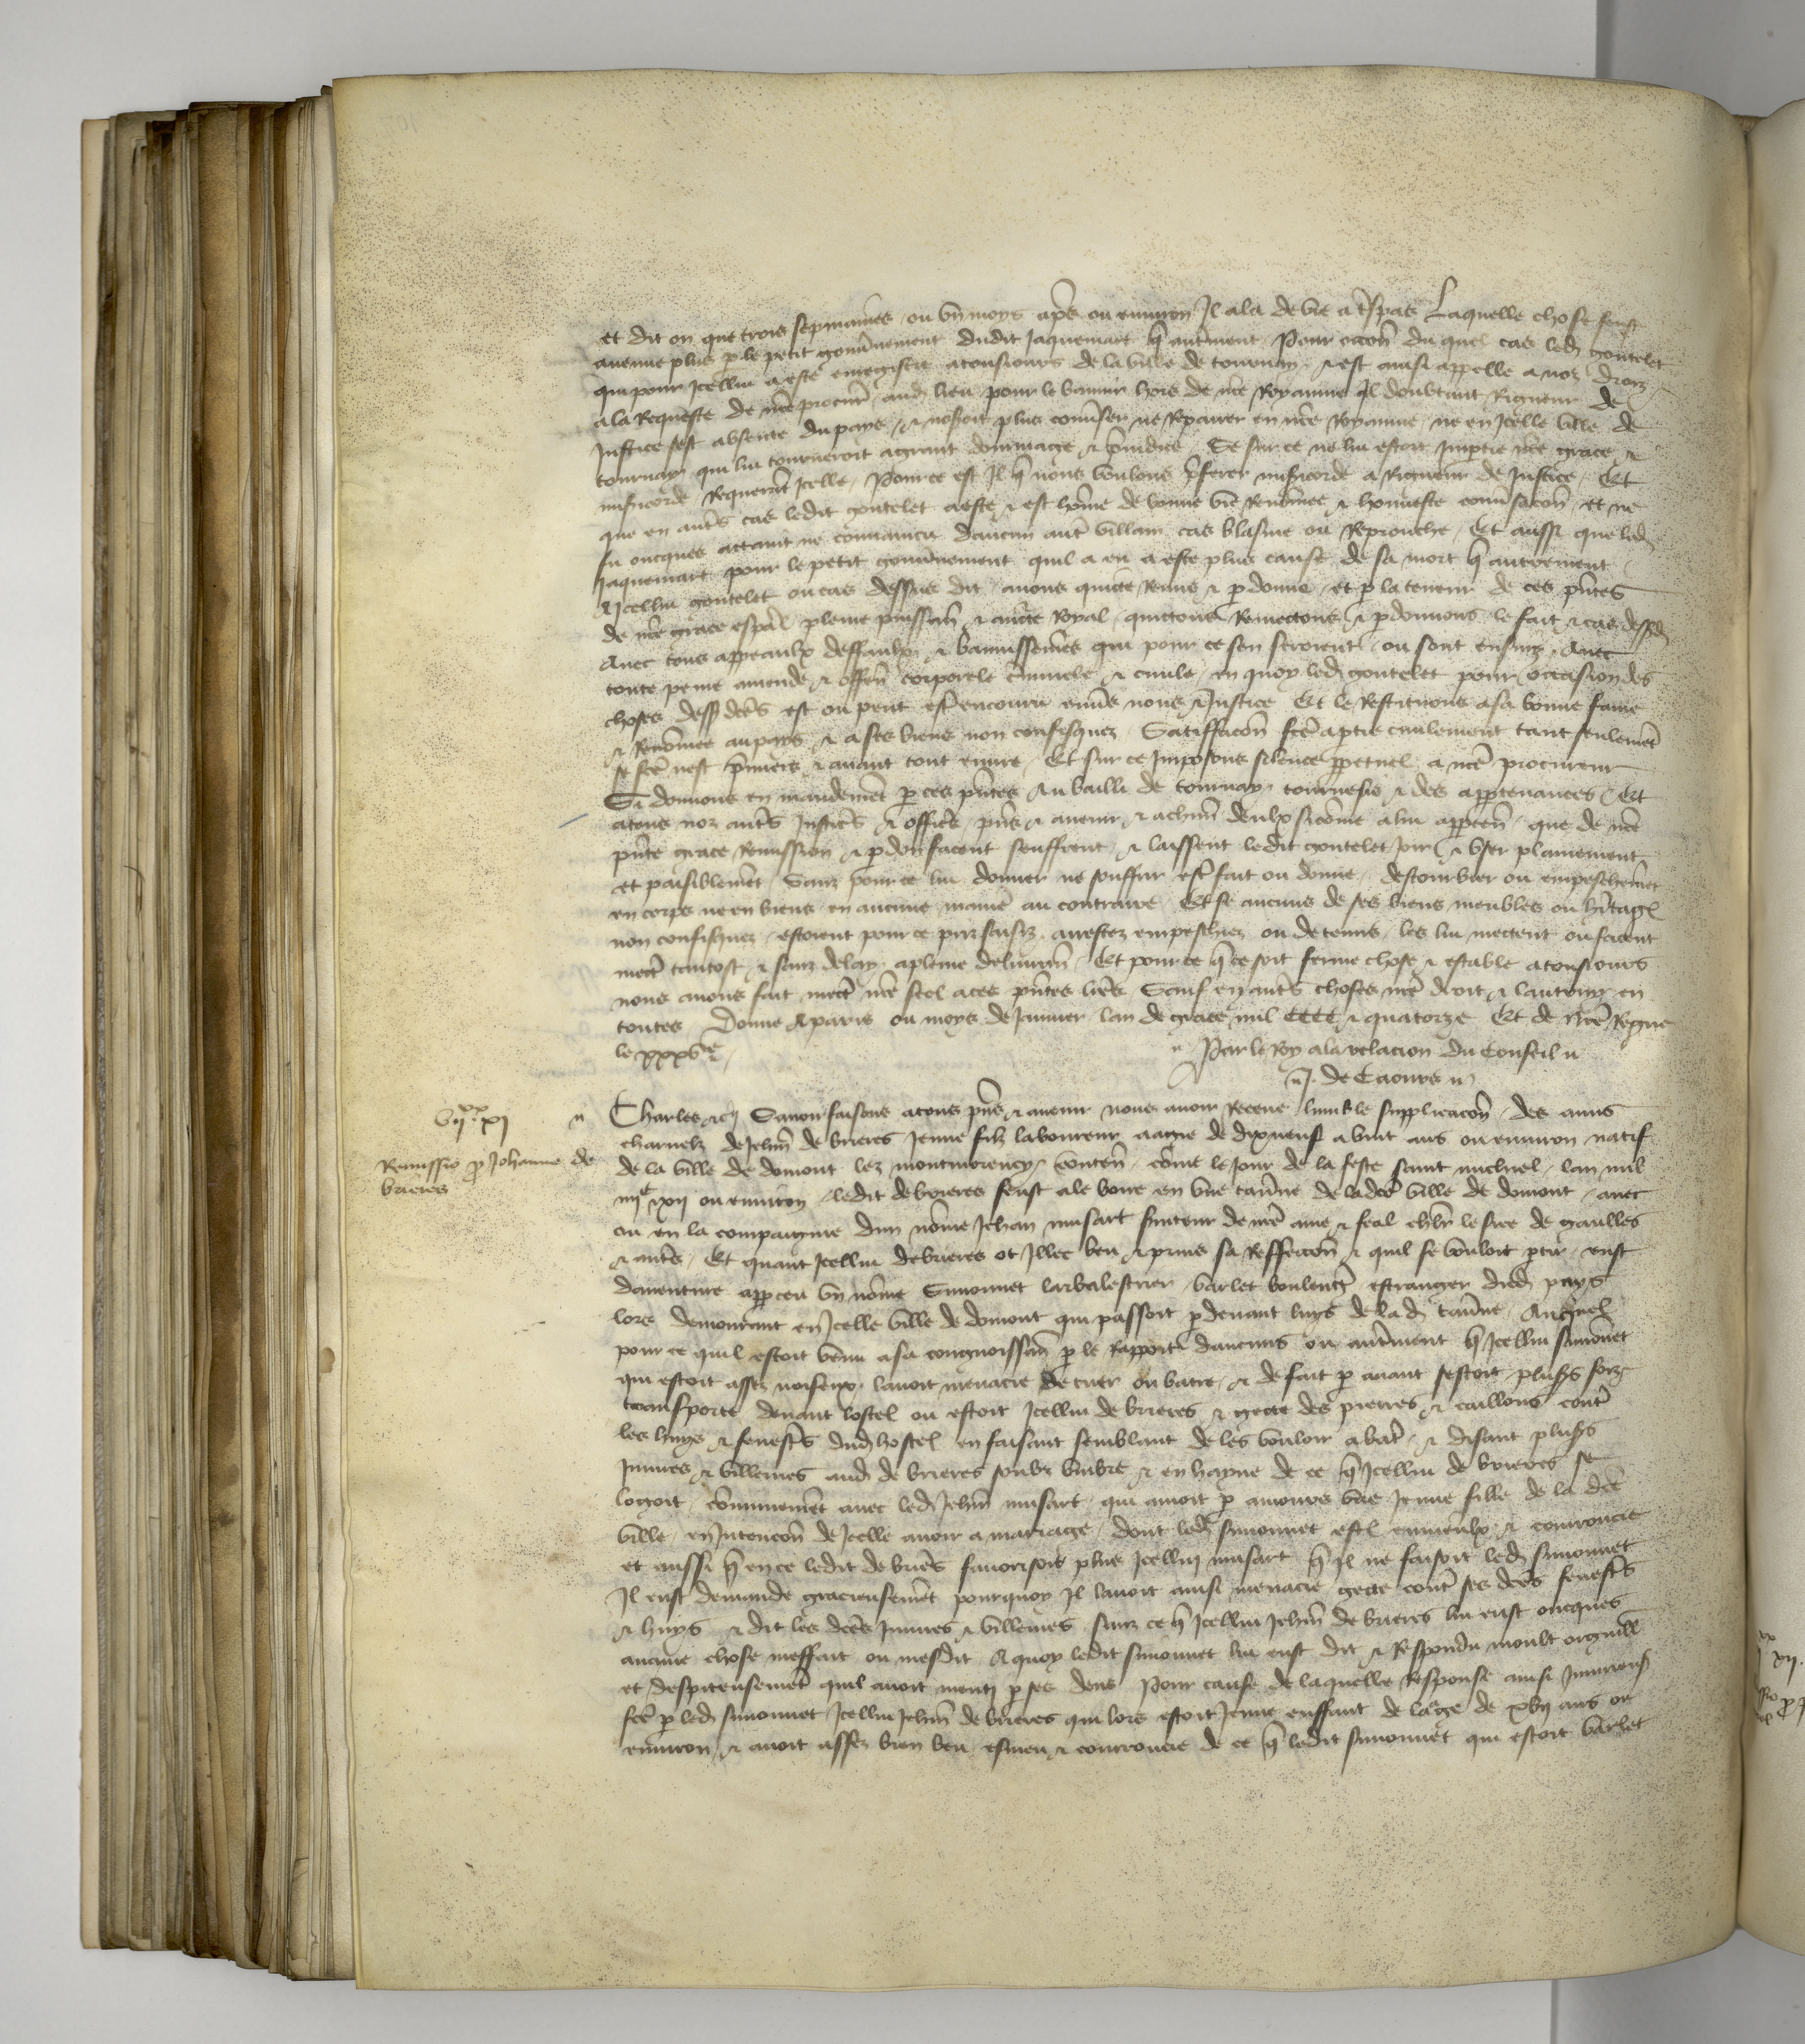 et dit on que trois sepmaines ou vn moys apres ou enuiron Il ala de vie a trespas Laquelle chose feust
auenue plus p le petit gouunement dudit Jaquemart q autment Pour occon du quel cas led goutelet
qui pour Icellui a este enregistre a tousiours de la ville de tournay / et est ainsi appelle a noz droiz
a la Requeste de nre procur aud lieu pour le bannir hors de nre Royaume Il doubtant Rigueur de
Justice sest absente du pays / et nosoit plus conuser ne Repairer en nre Royaume ne en Icelle ville de
tournay qui lui tourneroit a grant dommage et preiudice Se sur ce ne lui estoit Impartie nre grace et
misericorde Requerant Icelle / Pource est Il q nous voulons preferer misericorde a Rigueur de Justice Et
que en autrs cas ledit goutelet a este et est home de bonne vie Renommee et honneste conuersacon et ne
fu oncques attaint ne conuaincu daucun autre villain cas blasme ou Reprouche Et aussi que led
Jaquemart pour le petit gouunement quil a eu a este plus cause de sa mort q autrement
A Icellui goutelet ou cas dessus dit auons quicte Remis et pdonne et p la teneur de ces pntes
de nre grace espal pleine puissan et aucte Royal quictons Remectons et pdonnons le fait et cas dessusd
Auec tous appeaulx deffaulx et bannissemes qui pour ce sen seroient ou sont ensuiz Auec
toute peine amende et offen corporele criminele et ciuile en quoy led goutelet pour occasion des
choses dess dctes est ou peut estre encouru enuers nous et Justice Et le Restituons a sa bonne fame
et Renommee au pays et a ses biens non confisquez Satisffacon fce a ptie ciuilement tant seulemet
se fce nest premiers et auant tout euure / Et sur ce Imposons silence ppetuel a nre procureur
Si donnons en mandement p ces pntes Au bailli de tournay tournesis et des apptenances Et
a tous noz autrs Justics et offics pns et auenir et a chun deulx si come a lui appten que de nre
pnte grace Remission et pdon facent seuffrent et laissent ledit goutelet Joir et vser plainement
et paisiblement Sanz pour ce lui donner ne souffrir estre fait ou donne destourbier ou empeschemet
en corps ne en biens en aucune maniere au contraire Et se aucuns de ses biens meubles ou heritages
non confisquez estoient pour ce prins saisiz arrestez empeschez ou detenus les lui mectent ou facent
mectre tantost et sanz delay a pleine deliuran Et pour ce q ce soit ferme chose et estable a tousiours
nous auons fait mectre nre seel a ces pntes lres Sauf en autrs choses nre droit et lautruy en
toutes Donne A paris ou moys de Januier lan de grace mil CCCC et quatorze Et de Nre Regne
le xxxve
Par le Roy a la relacion du Conseil
J. de Caours
viixx xi
Charles etc Sauoir faisons a tous pns et auenir nous auoir Receue humble supplicacon des amis
Remissio p Johanne de
brieres
charnelz de Jehan de brieres Jeune filz laboureur aagie de dix neuf a vint ans ou enuiron natif
de la ville de domont lez montmorency conten come le Jour de la feste saint michiel lan mil
iiiic xii ou enuiron ledit de brieres feust ale boire en vne tauerne de lad ville de domont auec
ou en la compaignie dun nome Jehan musart seruiteur de nre ame et feal chlr le sire de gaulles
et autrs Et quant Icellui de brieres ot Illec beu et prins sa Reffeccon et quil se vouloit ptir eust
dauenture apperceu vn nome Simonnet larbalestrier varlet boulengier estrangier dud pays
lors demourant en Icelle ville de domont qui passoit p deuant luys de lad tauerne Auquel
pour ce quil estoit venu a sa congnoissan p le Rapport daucuns ou autrement q Icellui simonet
qui estoit assez noiseux lauoit menacie de tuer ou batre et de fait p auant sestoit plusrs foiz
transporte deuant lostel ou estoit Icellui de brieres et gecte des pierres et cailloux contre
les huys et fenestrs dud hostel en faisant semblant de les vouloir abatre et disant plusrs
Iniures et villenies aud de brieres soubz vmbre et en hayne de ce q Icellui de brieres se
logoit communement auec led Jehan musart qui amoit p amours vne Jeune fille de la dce
ville en Intencon de Icelle auoir a mariage dont led simonnet est enuieulx et courroucie
et aussi q en ce ledit de brieres fauorisoit plus Icellui musart q Il ne faisoit led simonnet
Il eust demande gracieusement pourquoy Il lauoit ainsi menacie gecte contre ses dces fenestrs
et huys et dit les dces Iniures et villenies sanz ce q Icellui Jehan de brieres lui eust oncques
aucune chose meffait ou mesdit A quoy ledit simonnet lui eust dit et Respondu moult orguill
et despiteusement quil auoit menti p ses dens Pour cause de laquelle Response ainsi Iniurieus
fce p led simonnet Icellui Jehan de brieres qui lors estoit Jeune enffant de laage de xvii ans ou
enuiron et auoit assez bien beu esmeu et courroucie de ce q ledit simonnet qui estoit varlet